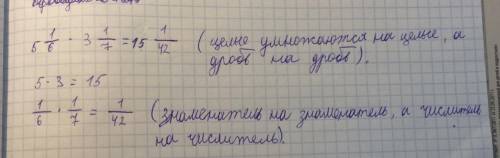 5 1/6 · 3 1/7 = 15 1/42 (целые умножаются на целые, а
дробь на дробь).
5 · 3 = 15
1/6 · 1/7 = 1/42 (знаменатель на знаменатель, а числитель
на числитель).